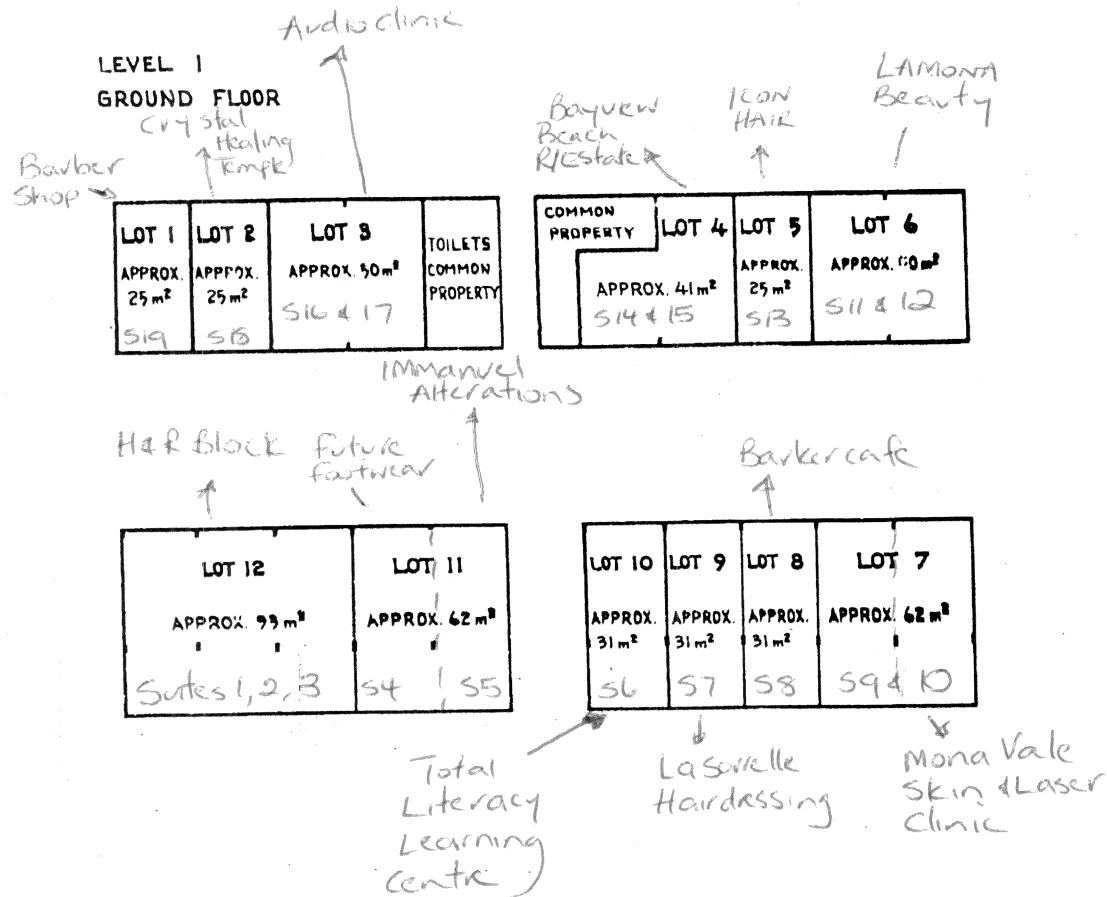 Audio Clinic
LEVEL 1
GROUND FLOOR
Crystal
Healing
Temple
Barber
Shop
Bayview
Beach
R/Estate
ICON
HAIR
LAMONA
Beauty
LOT 1
APPROX.
25 m²
S19
LOT 2
APPROX.
25 m²
S18
LOT 3
APPROX. 50 m²
S16 & 17
TOILETS
COMMON
PROPERTY
COMMON
PROPERTY
LOT 4
APPROX. 41 m²
S14 & 15
LOT 5
APPROX.
25 m²
S13
LOT 6
APPROX. m²
S11 & 12
IMManuel
Alterations
H&R Block
Future
Footwear
Barkercafe
LOT 12
APPROX. 93 m²
Suites 1, 2, 3
LOT 11
APPROX. 62 m²
S4
S5
LOT 10
APPROX.
31 m²
S6
LOT 9
APPROX.
31 m²
S7
LOT 8
APPROX.
31 m²
S8
LOT 7
APPROX. 62 m²
S9 & 10
Total
Literacy
Learning
Centre
Hairdressing
Mona Vale
Skin & Laser
Clinic